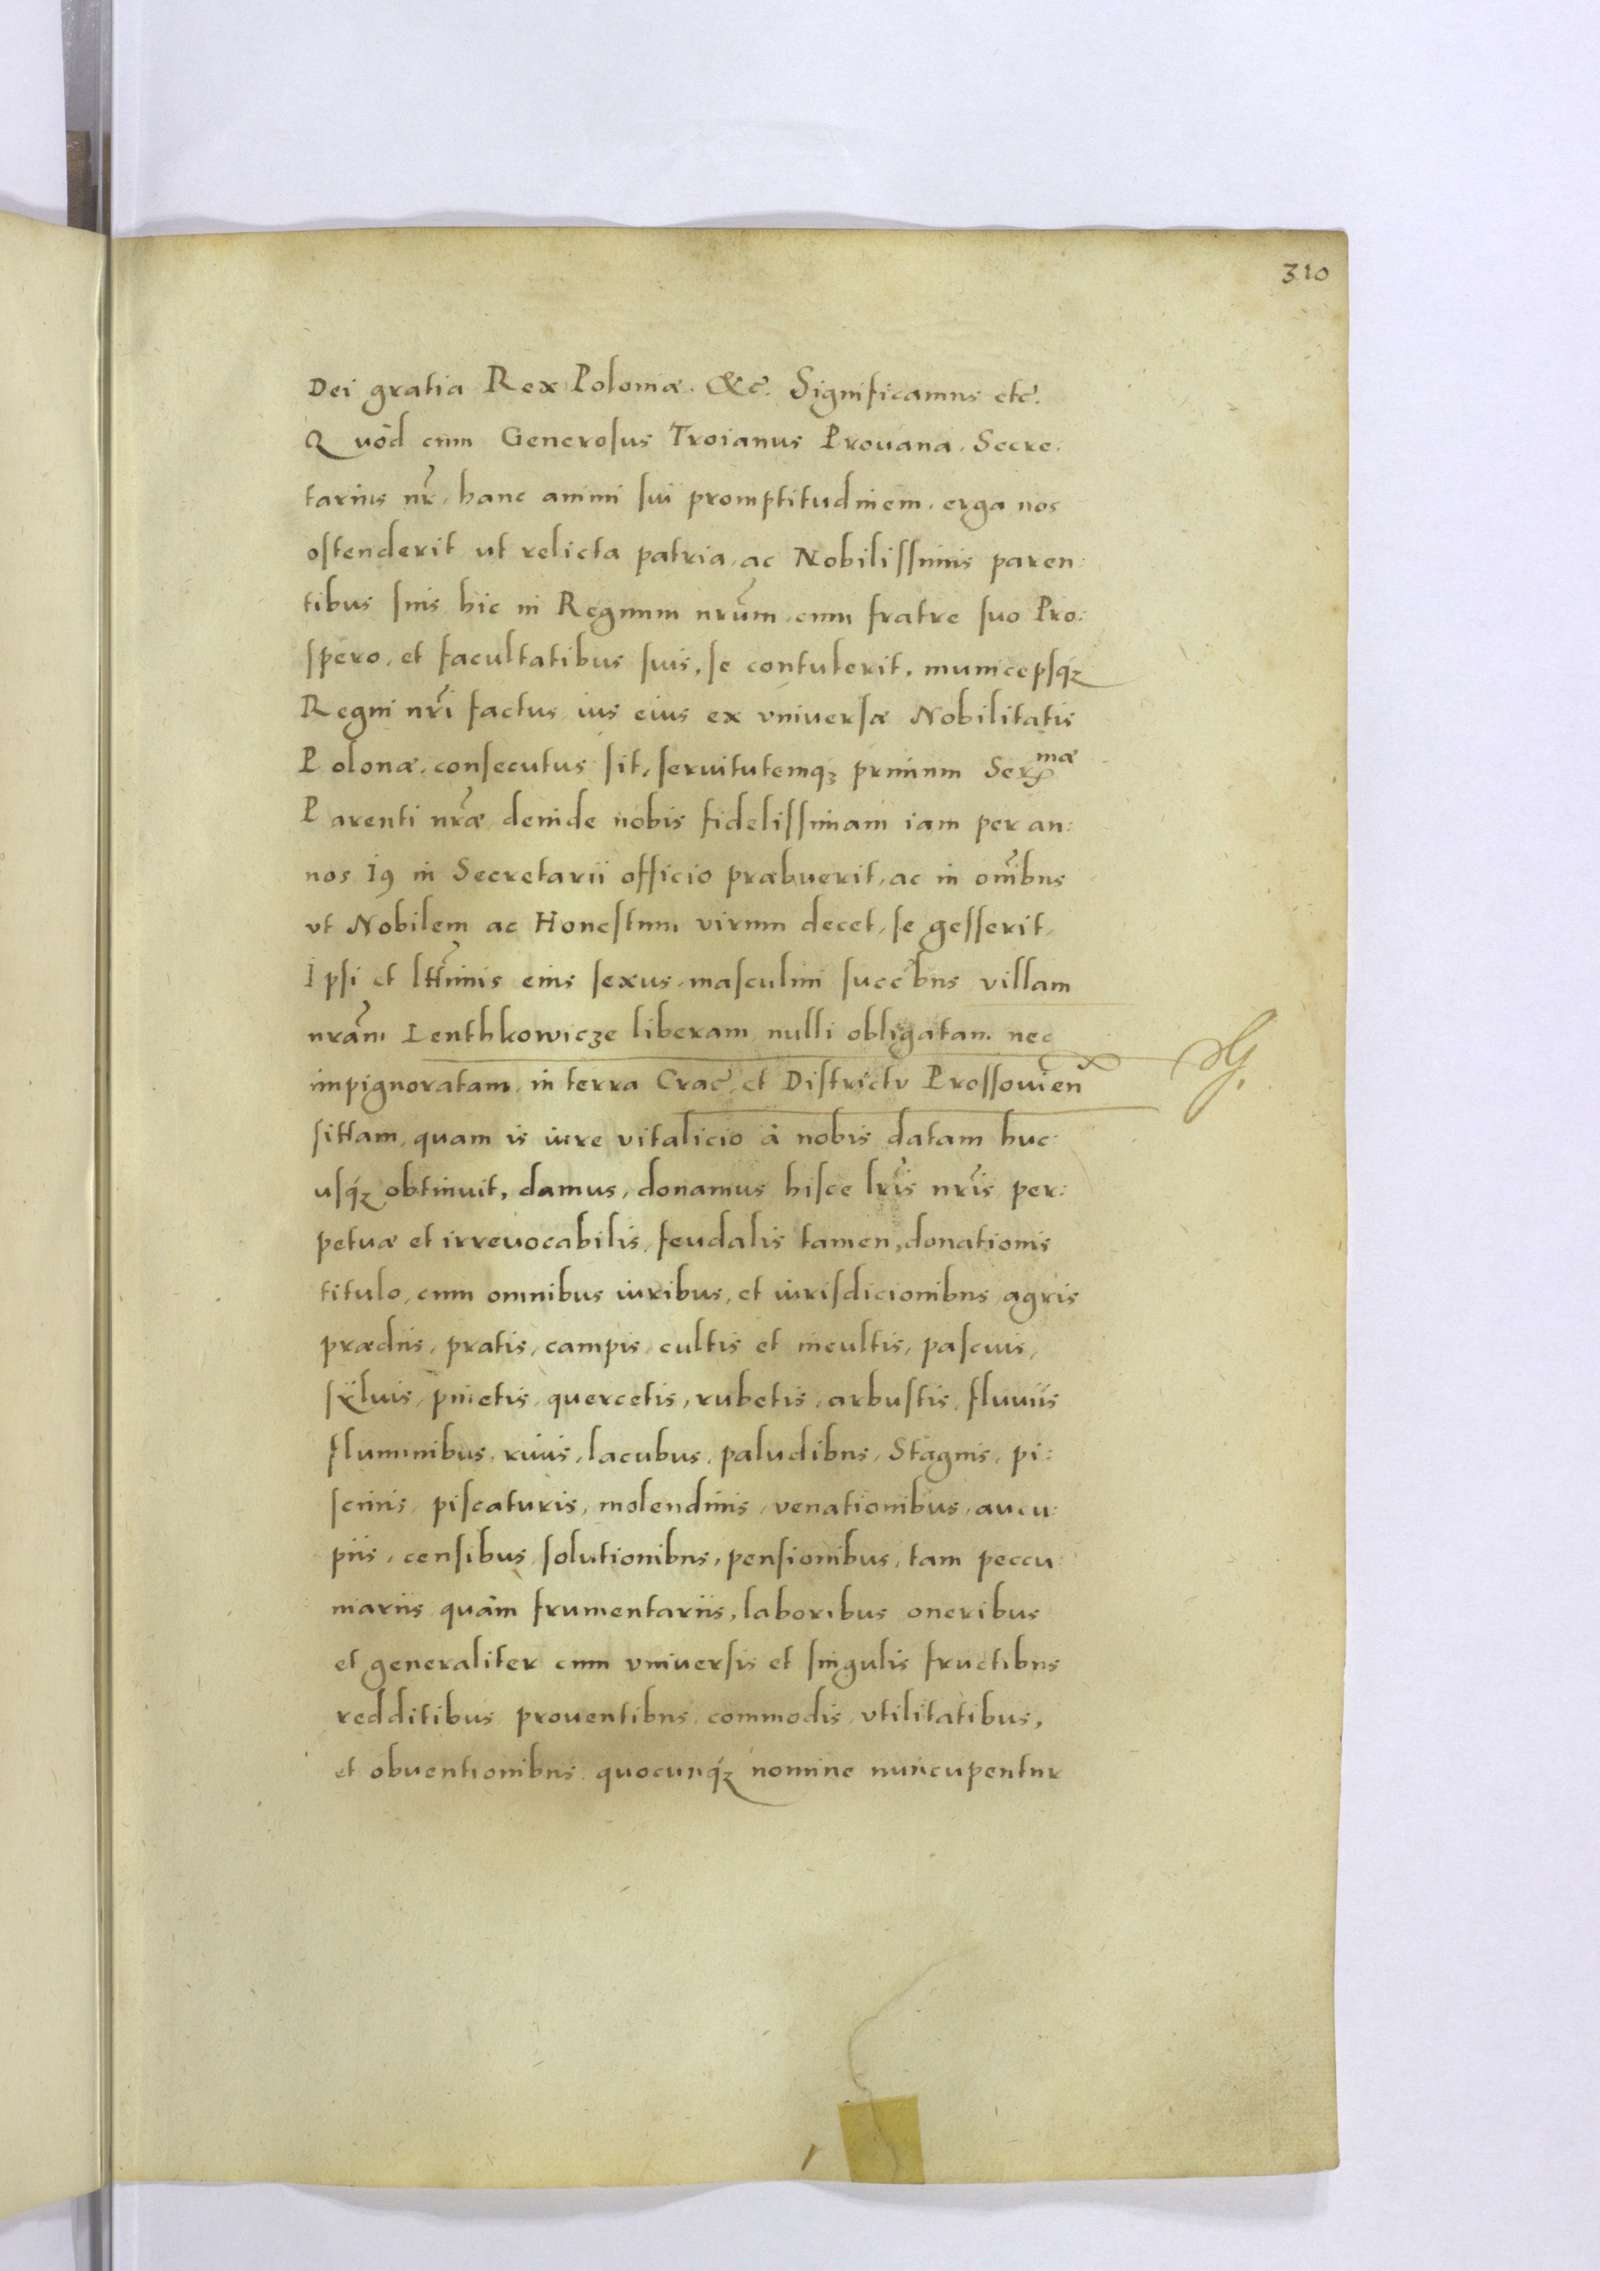 310
Dei gratia Rex Poloniæ. &c̃. Significamus etc̃.
Quòd cum Generosus Troianus Prouana, Secre:
tarius nr̃, hanc animi sui promptitudinem, erga nos
ostenderit ut relicta patria, ac Nobilissimis paren:
tibus suis hic in Regnum nrũm, cum fratre suo Pro:
spero, et facultatibus suis, se contulerit, municepsq́ꝫ
Regni nrĩ factus, ius eius ex vniuersæ Nobilitatis
Polonæ, consecutus sit, seruitutemqꝫ primum Ser^mæ
Parenti nræ̃ deinde nobis fidelissimam iam per an:
nos 19 in Secretarii officio præbuerit, ac in om̃ibus
vt Nobilem ac Honestum virum decet, se gesserit,
Ipsi et ltt̃imis eius sexus masculini succ̃bus villam
nrãm Lenthkowicze liberam nulli obligatam nec
impignoratam, in terra Crac̃, et Districtu Prossouieñ
sittam, quam is iure vitalicio à nobis datam huc:
usq́ꝫ obtinuit, damus, donamus hisce lrĩs nrĩs per:
petuæ et irreuocabilis, feudalis tamen, donationis
titulo, cum omnibus iuribus, et iurisdicionibus, agris
prædiis, pratis, campis, cultis et incultis, pascuis,
sÿluis, pinetis, quercetis, rubetis, arbustis, fluuiis
fluminibus, riuis, lacubus, paludibus, Stagnis, pi:
scinis, piscaturis, molendinis, venationibus, aucu:
piis, censibus, solutionibus, pensionibus, tam peccu:
niariis quàm frumentariis, laboribus oneribus
et generaliter cum vniuersis et singulis fructibus
redditibus prouentibus, commodis, vtilitatibus,
et obuentionibus, quocunq́ꝫ nomine nuncupentur